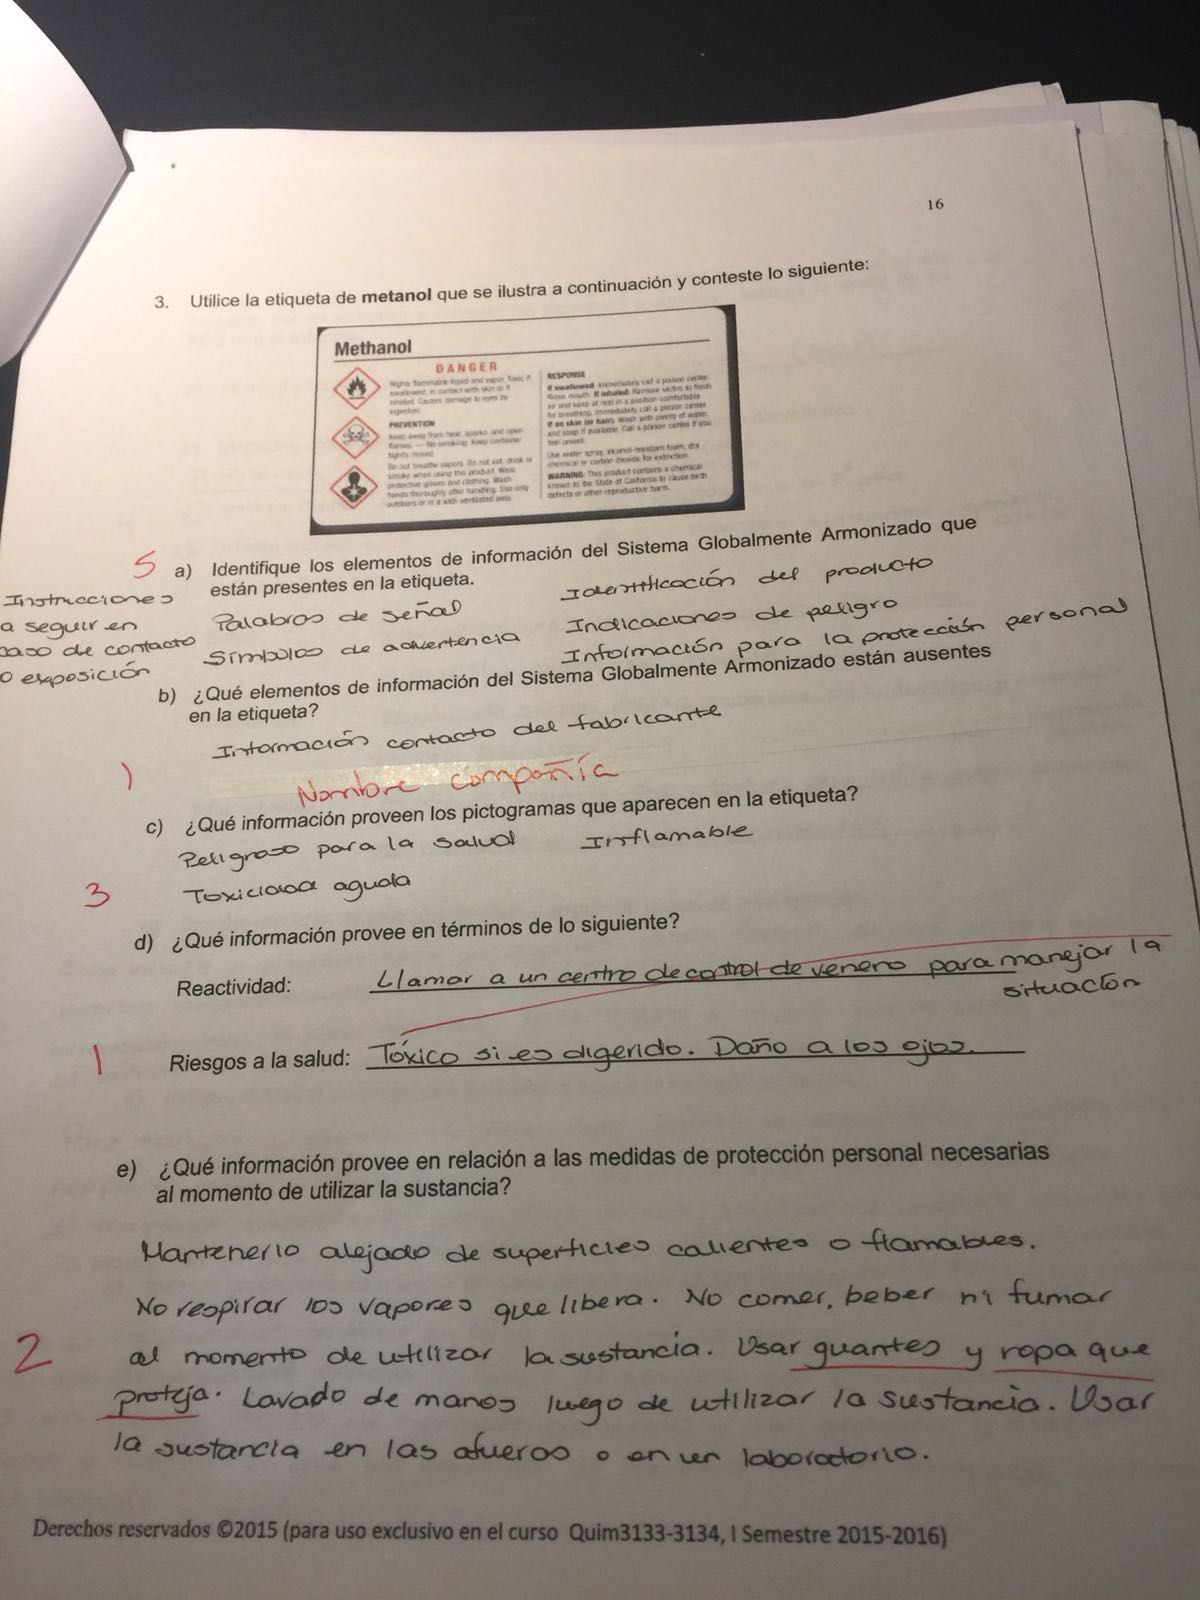 16
3. Utilice la etiqueta de metanol que se ilustra a continuación y conteste lo siguiente:
Methanol
DANGER
Highly flammable liquid and vapor. Toxic if
swallowed, in contact with skin or if
inhaled. Causes damage to eyes by
ingestion.
PREVENTION
Keep away from heat, sparks, and open
flames. — No smoking. Keep container
tightly closed.
Do not breathe vapors. Do not eat, drink or
smoke when using this product. Wear
protective gloves and clothing. Wash
hands thoroughly after handling. Use only
outdoors or in a well-ventilated area.
RESPONSE
If swallowed: Immediately call a poison center.
Rinse mouth. If inhaled: Remove victim to fresh
air and keep at rest in a position comfortable
for breathing. Immediately call a poison center.
If on skin (or hair): Wash with plenty of water,
and soap if available. Call a poison center if you
feel unwell.
Use water spray, alcohol-resistant foam, dry
chemical or carbon dioxide for extinction.
WARNING: This product contains a chemical
known to the State of California to cause birth
defects or other reproductive harm.
5 a) Identifique los elementos de información del Sistema Globalmente Armonizado que
están presentes en la etiqueta.
Instrucciones
a seguir en
caso de contacto
o exposición
Palabras de señal
Símbolos de advertencia
Identificación del producto
Indicaciones de peligro
Información para la protección personal
b) ¿Qué elementos de información del Sistema Globalmente Armonizado están ausentes
en la etiqueta?
Información contacto del fabricante
1
Nombre compañía
c) ¿Qué información proveen los pictogramas que aparecen en la etiqueta?
Peligroso para la salud Inflamable
3 Toxicidad aguda
d) ¿Qué información provee en términos de lo siguiente?
Reactividad: Llamar a un centro de control de veneno para manejar la
situación
1 Riesgos a la salud: Tóxico si es digerido. Daño a los ojos.
e) ¿Qué información provee en relación a las medidas de protección personal necesarias
al momento de utilizar la sustancia?
Mantenerlo alejado de superficies calientes o flamables.
No respirar los vapores que libera. No comer, beber ni fumar
2 al momento de utilizar la sustancia. Usar guantes y ropa que
proteja. Lavado de manos luego de utilizar la sustancia. Usar
la sustancia en las afueras o en un laboratorio.
Derechos reservados ©2015 (para uso exclusivo en el curso Quim3133-3134, I Semestre 2015-2016)